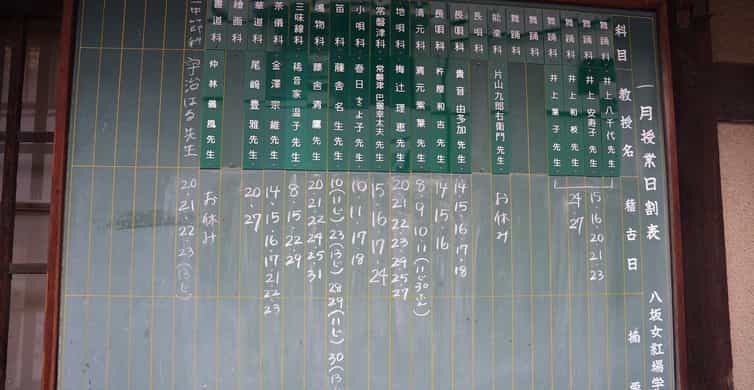 一月授業日割表 八坂女紅場学
科目 教授名 稽古日 摘要
舞踊科 井上八千代先生
舞踊科 井上安寿子先生 15.16.20.21.23
舞踊科 井上和枝先生 24.27
舞踊科 井上葉子先生
舞踊科
舞踊科
能楽科 片山九郎右衛門先生 お休み
長唄
長唄科 貴音由多加先生 14.15.16.17.18
長唄科 杵屋和吉先生 14.15.16
清元科 清元紫葉先生 8.9.10.11(11じ30ふん)
地唄科 梅辻理恵先生 20.21.22.23.24.25.27
常磐津科 常磐津巴瑠幸太夫先生 15.16.17.24
小唄科 春日とよ子先生 10.11.17.18
笛科 藤舎名生先生 10(11じ)23(13じ)28 29(11じ)30(13
鳴物科 藤舎清鷹先生 20 21 22 24 25 31
三味線科 稀音家温子先生 8.15.22.29
茶儀科 金澤宗維先生 14.15.16.17 21 22.23
華道科 尾崎豊雅先生 20.27
絵画科
書道科 仲林義風先生 お休み
宇治はる先生 20.21.22.23(13じ)